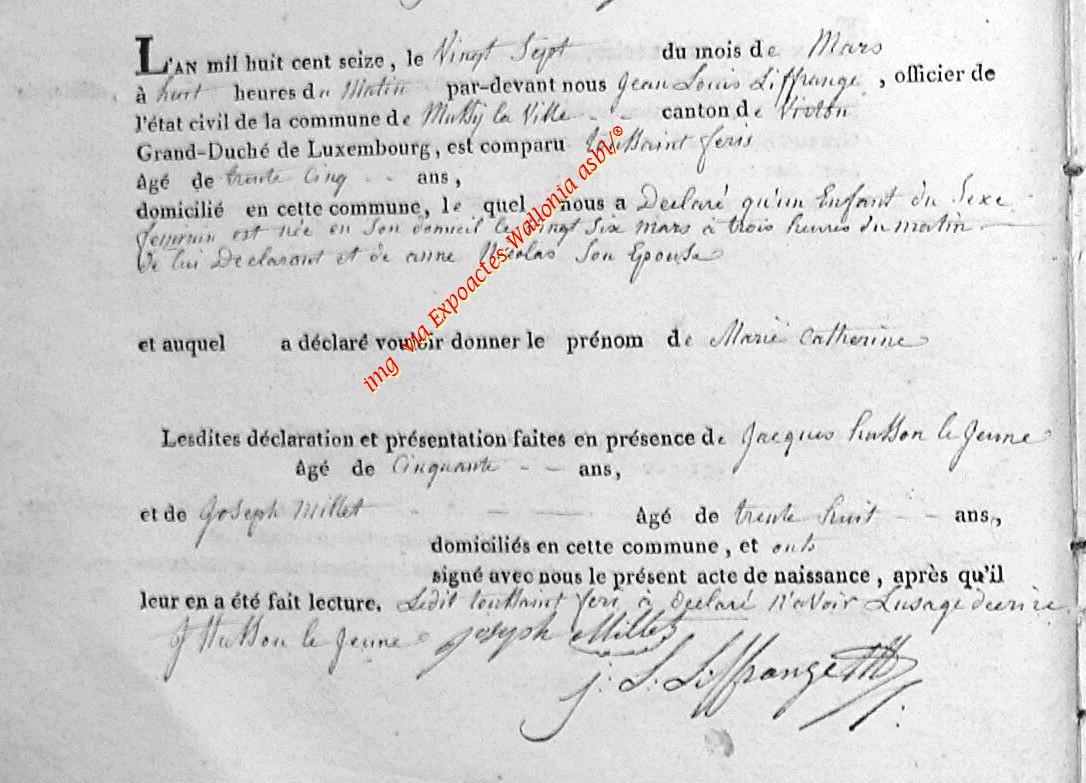 L'AN mil huit cent seize, le Vingt Sept du mois de Mars
à huit heures du Matin par-devant nous Jean Louis Liffrange, officier de
l'état civil de la commune de Mussy la Ville - - canton de Virton
Grand-Duché de Luxembourg, est comparu Toussaint feris
âgé de trente Cinq - - ans,
domicilié en cette commune, le quel nous a Declaré qu'un Enfant du Sexe
feminin est née en Son domicil le vingt six mars à trois heures du matin
De lui Declarant et de anne Nicolas Son Epouse
et auquel a déclaré vouloir donner le prénom de Marie Catherine
Lesdites déclaration et présentation faites en présence de Jacques husson le jeune
âgé de Cinquante - - ans,
et de Joseph Millet - - — âgé de trente huit - - ans,
domiciliés en cette commune, et onts
signé avec nous le présent acte de naissance, après qu'il
leur en a été fait lecture. Ledit toussaint feri à Declaré N'avoir Lusage decrire
J Husson le jeune Joseph Millet
J: L: Liffrange
img via Expoactes-Wallonia asbl/®